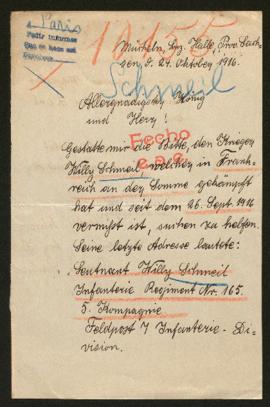 Paris
Pedir informes
Schmeil
Mücheln, Bez. Halle, Prov. Sach-
sen d. 24. Oktober 1916.
Allergnädigster König
und Herr!
Fecho
Gestatte mir die Bitte, den Krieger
Willy Schmeil, welcher in Frank-
reich an der Somme gekämpft
hat und seit dem 26. Sept. 1916
vermißt ist, suchen zu helfen.
Seine letzte Adresse lautete:
Leutnant Willy Schmeil
Infanterie Regiment Nr. 165.
5. Kompagnie
Feldpost 7 Infanterie-Di-
vision.